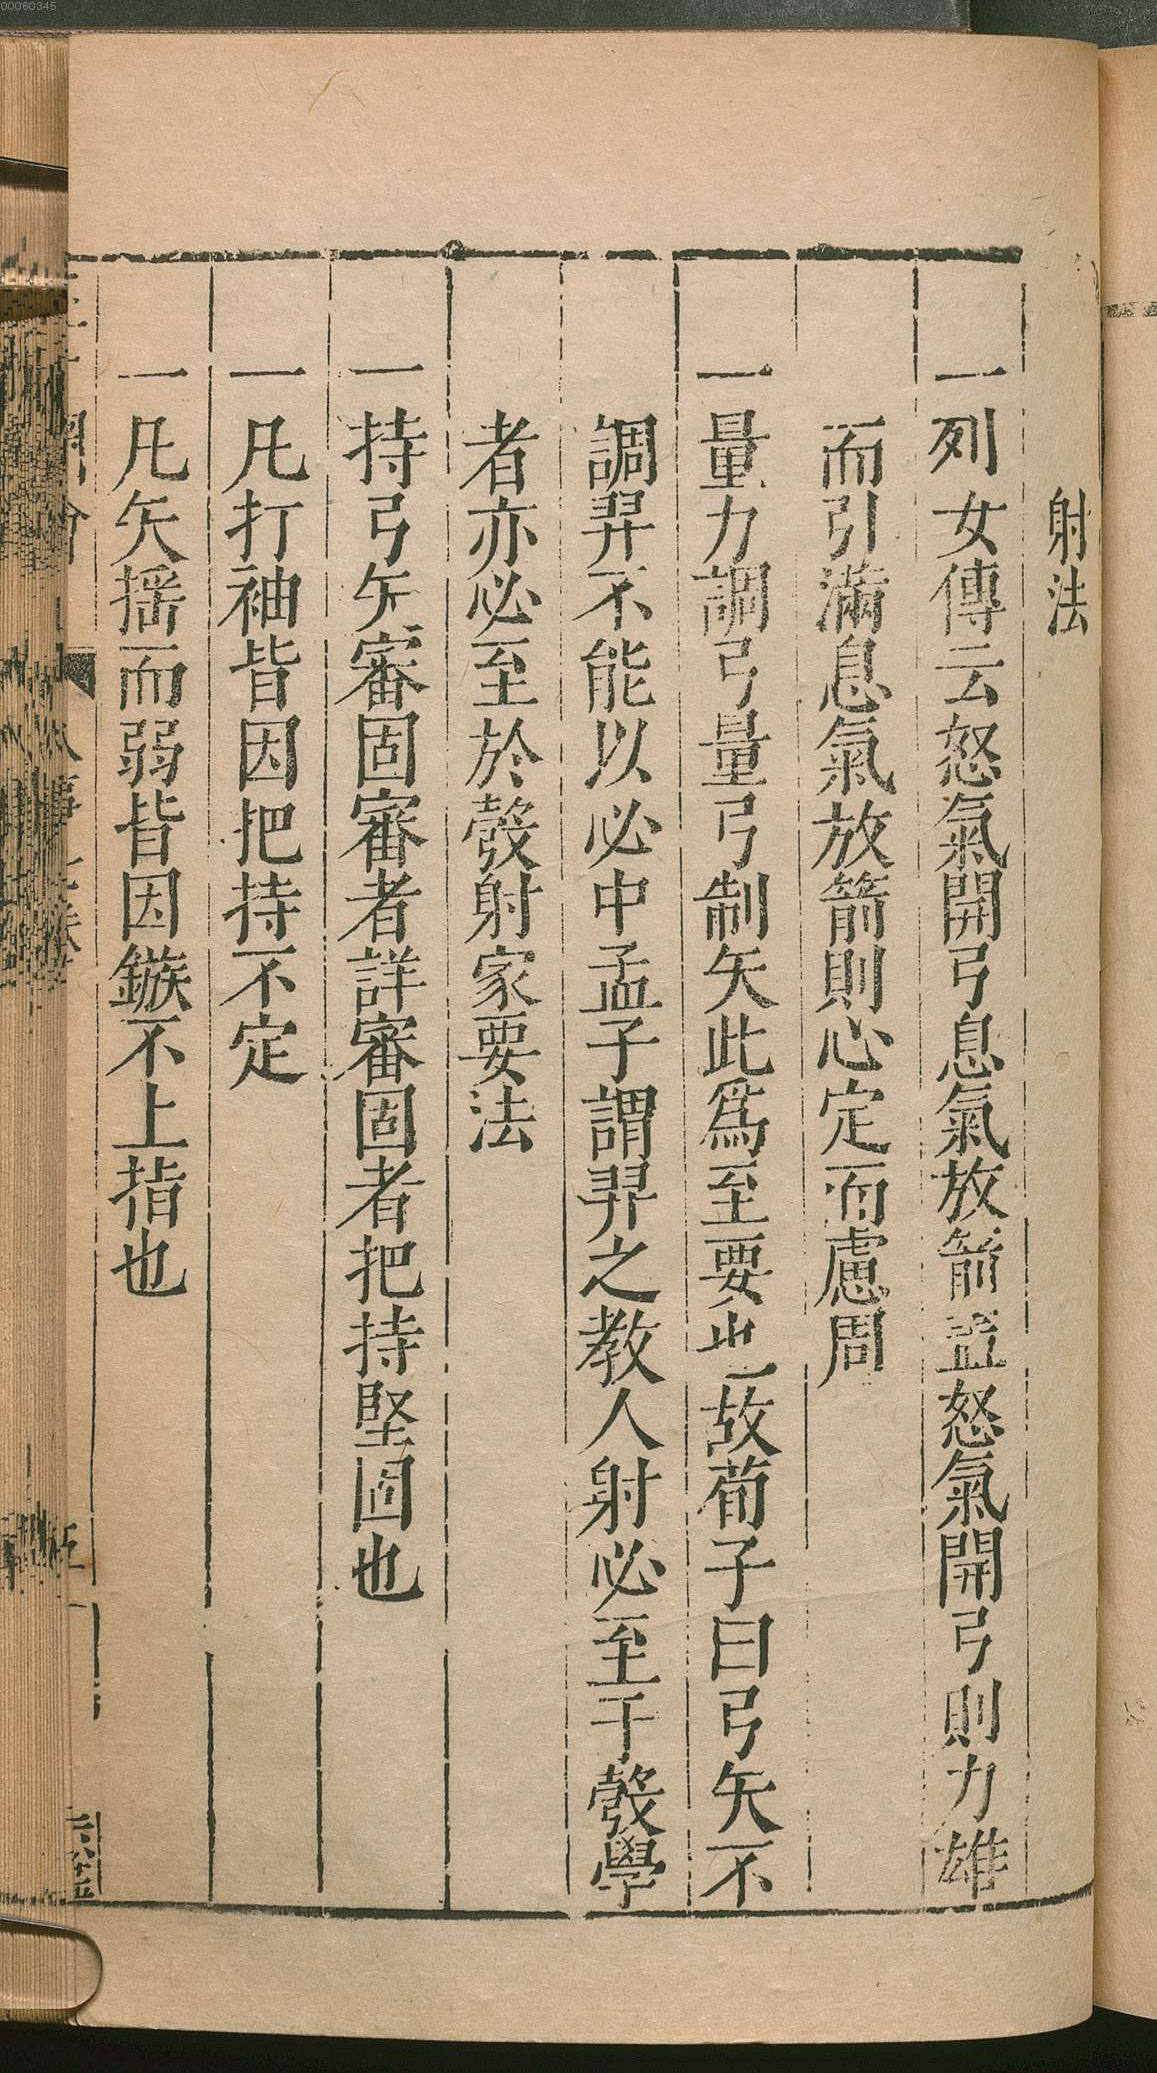 00060345
射法
一列女傳云怒氣開弓息氣放箭葢怒氣開弓則力雄
而引滿息氣放箭則心定而慮周
一量力調弓量弓制矢此爲至要也故荀子曰弓矢不
調羿不能以必中孟子謂羿之教人射必至于彀學
者亦必至於彀射家要法
一持弓矢審固審者詳審固者把持堅固也
一凡打袖皆因把持不定
一凡矢揺而弱皆因鏃不上指也